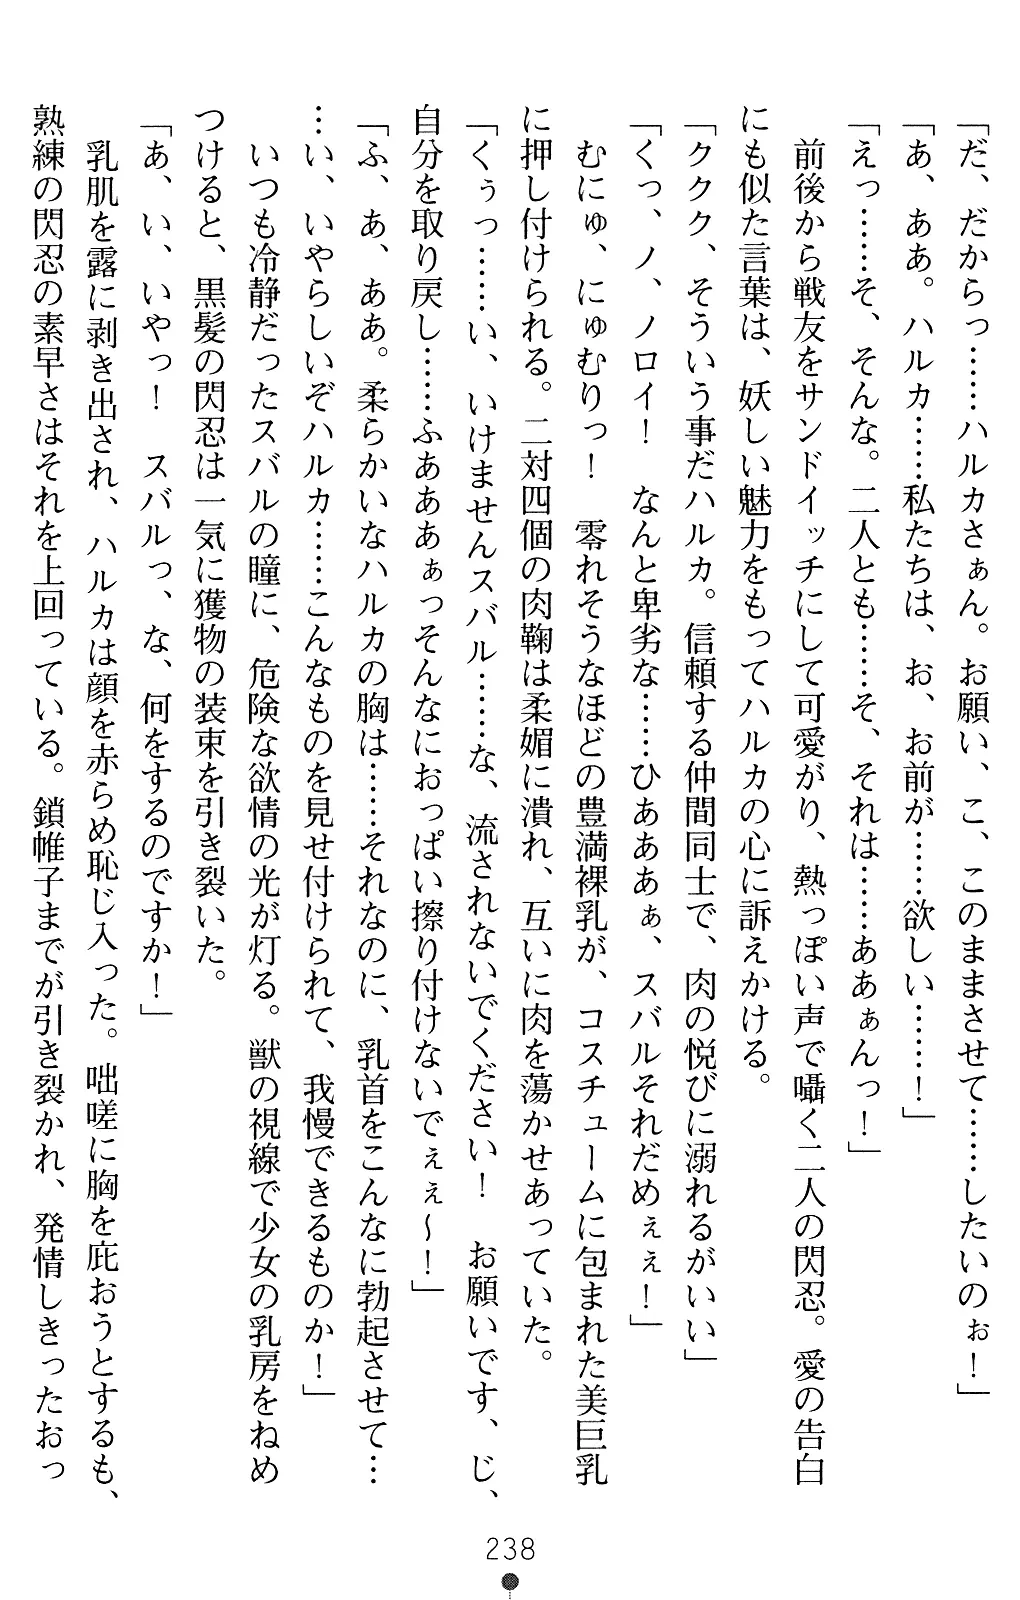 「だ、だからっ……ハルカさぁん。お願い、こ、このままさせて……したいのぉ！」
「あ、ああ。ハルカ……私たちは、お、お前が……欲しい……！」
「えっ……そ、そんな。二人とも……そ、それは……ああぁんっ！」
　前後から戦友をサンドイッチにして可愛がり、熱っぽい声で囁く二人の閃忍。愛の告白
にも似た言葉は、妖しい魅力をもってハルカの心に訴えかける。
「ククク、そういう事だハルカ。信頼する仲間同士で、肉の悦びに溺れるがいい」
「くっ、ノ、ノロイ！　なんと卑劣な……ひあああぁ、スバルそれだめぇぇ！」
　むにゅ、にゅむりっ！　零れそうなほどの豊満裸乳が、コスチュームに包まれた美巨乳
に押し付けられる。二対四個の肉鞠は柔媚に潰れ、互いに肉を蕩かせあっていた。
「くぅっ……い、いけませんスバル……な、流されないでください！　お願いです、じ、
自分を取り戻し……ふあああぁっそんなにおっぱい擦り付けないでぇぇ～！」
「ふ、あ、ああ。柔らかいなハルカの胸は……それなのに、乳首をこんなに勃起させて…
…い、いやらしいぞハルカ……こんなものを見せ付けられて、我慢できるものか！」
　いつも冷静だったスバルの瞳に、危険な欲情の光が灯る。獣の視線で少女の乳房をねめ
つけると、黒髪の閃忍は一気に獲物の装束を引き裂いた。
「あ、い、いやっ！　スバルっ、な、何をするのですか！」
　乳肌を露に剥き出され、ハルカは顔を赤らめ恥じ入った。咄嗟に胸を庇おうとするも、
熟練の閃忍の素早さはそれを上回っている。鎖帷子までが引き裂かれ、発情しきったおっ
238